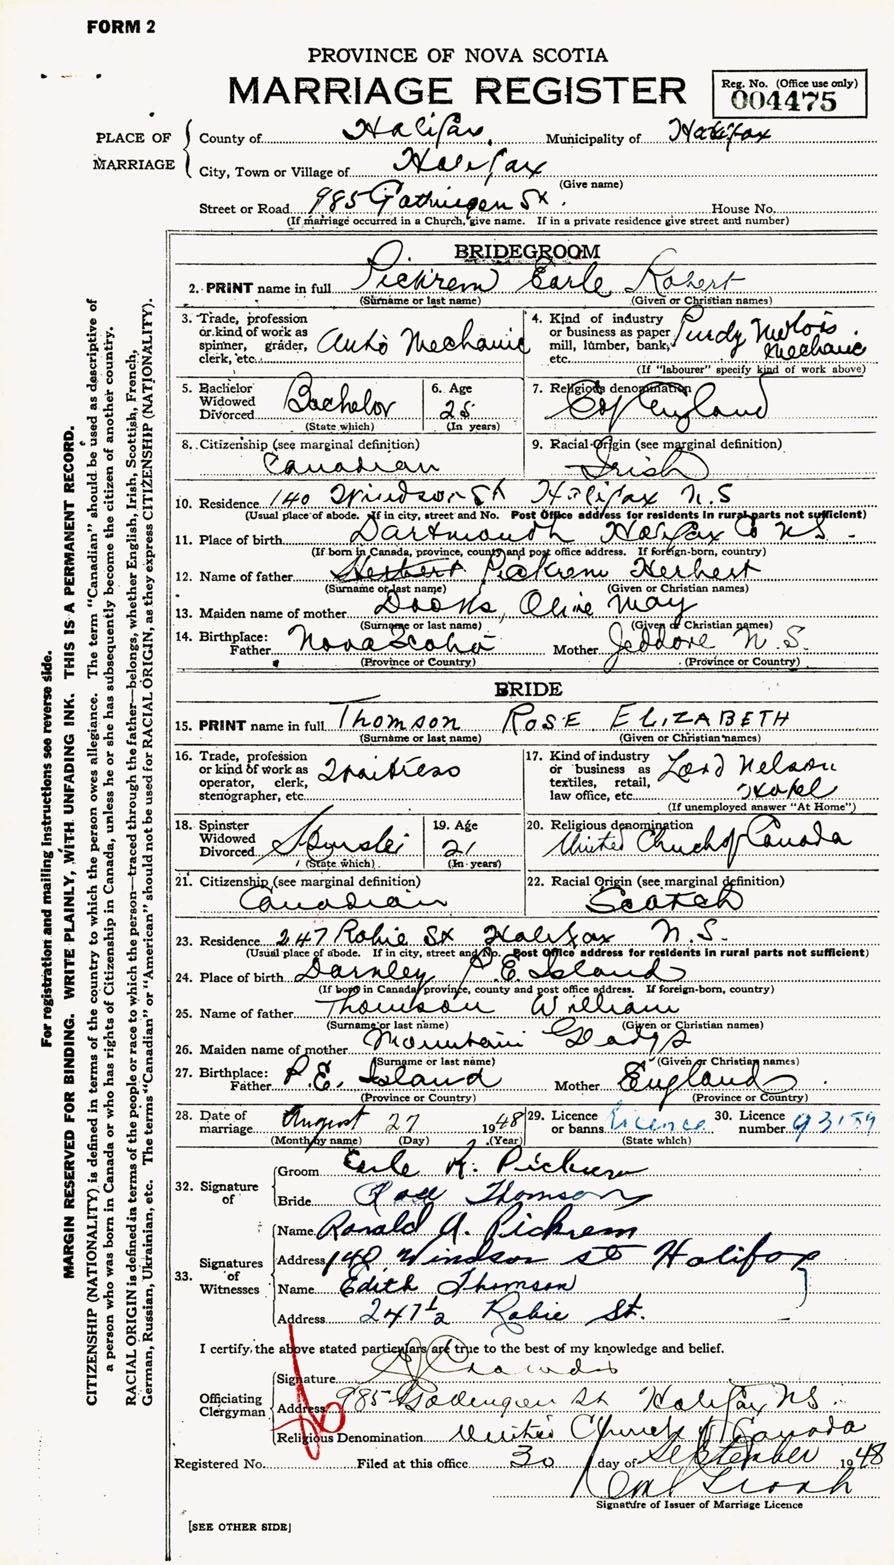 FORM 2
PROVINCE OF NOVA SCOTIA
MARRIAGE REGISTER
Reg. No. (Office use only)
004475
PLACE OF MARRIAGE
County of Halifax, Municipality of Halifax
City, Town or Village of Halifax
(Give name)
Street or Road 985 St. House No.
(If marriage occurred in a Church, give name. If in a private residence give street and number)
BRIDEGROOM
2. PRINT name in full Pickrem Earle Robert
(Surname or last name) (Given or Christian names)
3. Trade, profession or kind of work as spinner, grader, clerk, etc. Auto Mechanic
4. Kind of industry or business as paper mill, lumber, bank, etc. Purdy Motors Mechanic
(If "labourer" specify kind of work above)
5. Bachelor Widowed Divorced Bachelor
(State which)
6. Age 25
(In years)
7. Religious denomination C of England
8. Citizenship (see marginal definition)
Canadian
9. Racial Origin (see marginal definition)
Irish
10. Residence 140 Windsor St Halifax N.S
(Usual place of abode. If in city, street and No. Post Office address for residents in rural parts not sufficient)
11. Place of birth Dartmouth Halifax Co NS.
(If born in Canada, province, county and post office address. If foreign-born, country)
12. Name of father Herbert Pickrem Herbert
(Surname or last name) (Given or Christian names)
13. Maiden name of mother Olive May
(Surname or last name) (Given or Christian names)
14. Birthplace: Father Nova Scotia Mother Jeddore N.S.
(Province or Country) (Province or Country)
BRIDE
15. PRINT name in full Thomson ROSE ELIZABETH
(Surname or last name) (Given or Christian names)
16. Trade, profession or kind of work as operator, clerk, stenographer, etc. Waitress
17. Kind of industry or business as textiles, retail, law office, etc. Lord Nelson Hotel
(If unemployed answer "At Home")
18. Spinster Widowed Divorced Spinster
(State which)
19. Age 21
(In years)
20. Religious denomination
United Church of Canada
21. Citizenship (see marginal definition)
Canadian
22. Racial Origin (see marginal definition)
Scotch
23. Residence 247 Robie St Halifax N.S.
(Usual place of abode. If in city, street and No. Post Office address for residents in rural parts not sufficient)
24. Place of birth Darnley P.E. Island
(If born in Canada province, county and post office address. If foreign-born, country)
25. Name of father Thomson William
(Surname or last name) (Given or Christian names)
26. Maiden name of mother Mountain Gladys
(Surname or last name) (Given or Christian names)
27. Birthplace: Father P.E. Island Mother England
(Province or Country) (Province or Country)
28. Date of marriage August 27 1948
(Month by name) (Day) (Year)
29. Licence or banns Licence
(State which)
30. Licence number 93159
32. Signature of
Groom Earle R. Pickrem
Bride Rose Thomson
33. Signatures of Witnesses
Name Ronald A. Pickrem
Address 140 Windsor St Halifax
Name Edith Thomson
Address 247 1/2 Robie St.
I certify the above stated particulars are true to the best of my knowledge and belief.
Officiating Clergyman
Signature
Address 985 St Halifax NS.
Religious Denomination United Church of Canada
Registered No. Filed at this office 30 day of September 1948
Signature of Issuer of Marriage Licence
[SEE OTHER SIDE]
For registration and mailing instructions see reverse side.
MARGIN RESERVED FOR BINDING. WRITE PLAINLY, WITH UNFADING INK. THIS IS A PERMANENT RECORD.
CITIZENSHIP (NATIONALITY) is defined in terms of the country to which the person owes allegiance. The term "Canadian" should be used as descriptive of
a person who was born in Canada or who has rights of Citizenship in Canada, unless he or she has subsequently become the citizen of another country.
RACIAL ORIGIN is defined in terms of the people or race to which the person—traced through the father—belongs, whether English, Irish, Scottish, French,
German, Russian, Ukrainian, etc. The terms "Canadian" or "American" should not be used for RACIAL ORIGIN, as they express CITIZENSHIP (NATIONALITY).